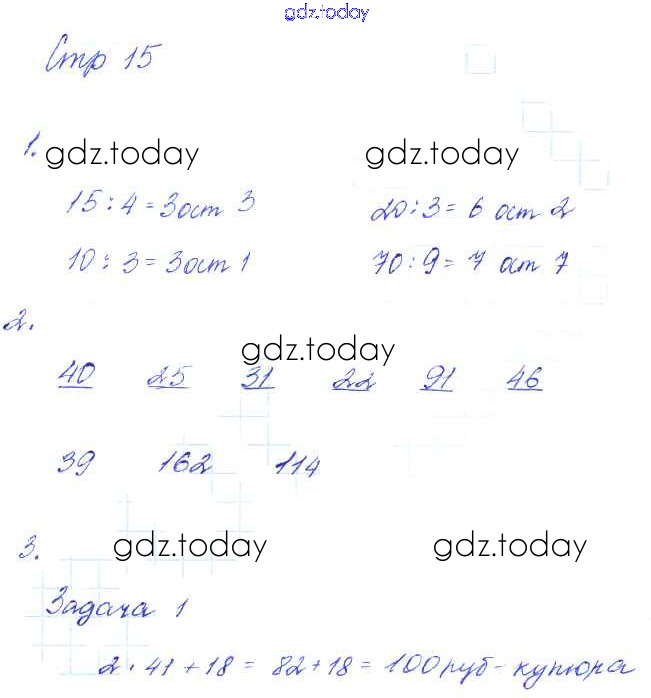 gdz.today
Стр 15
1. gdz.today gdz.today
15 : 4 = 3 ост 3 20 : 3 = 6 ост 2
10 : 3 = 3 ост 1 70 : 9 = 7 ост 7
2.
gdz.today
40 25 31 22 91 46
39 162 114
3. gdz.today gdz.today
Задача 1
2 · 41 + 18 = 82 + 18 = 100 руб - купюра